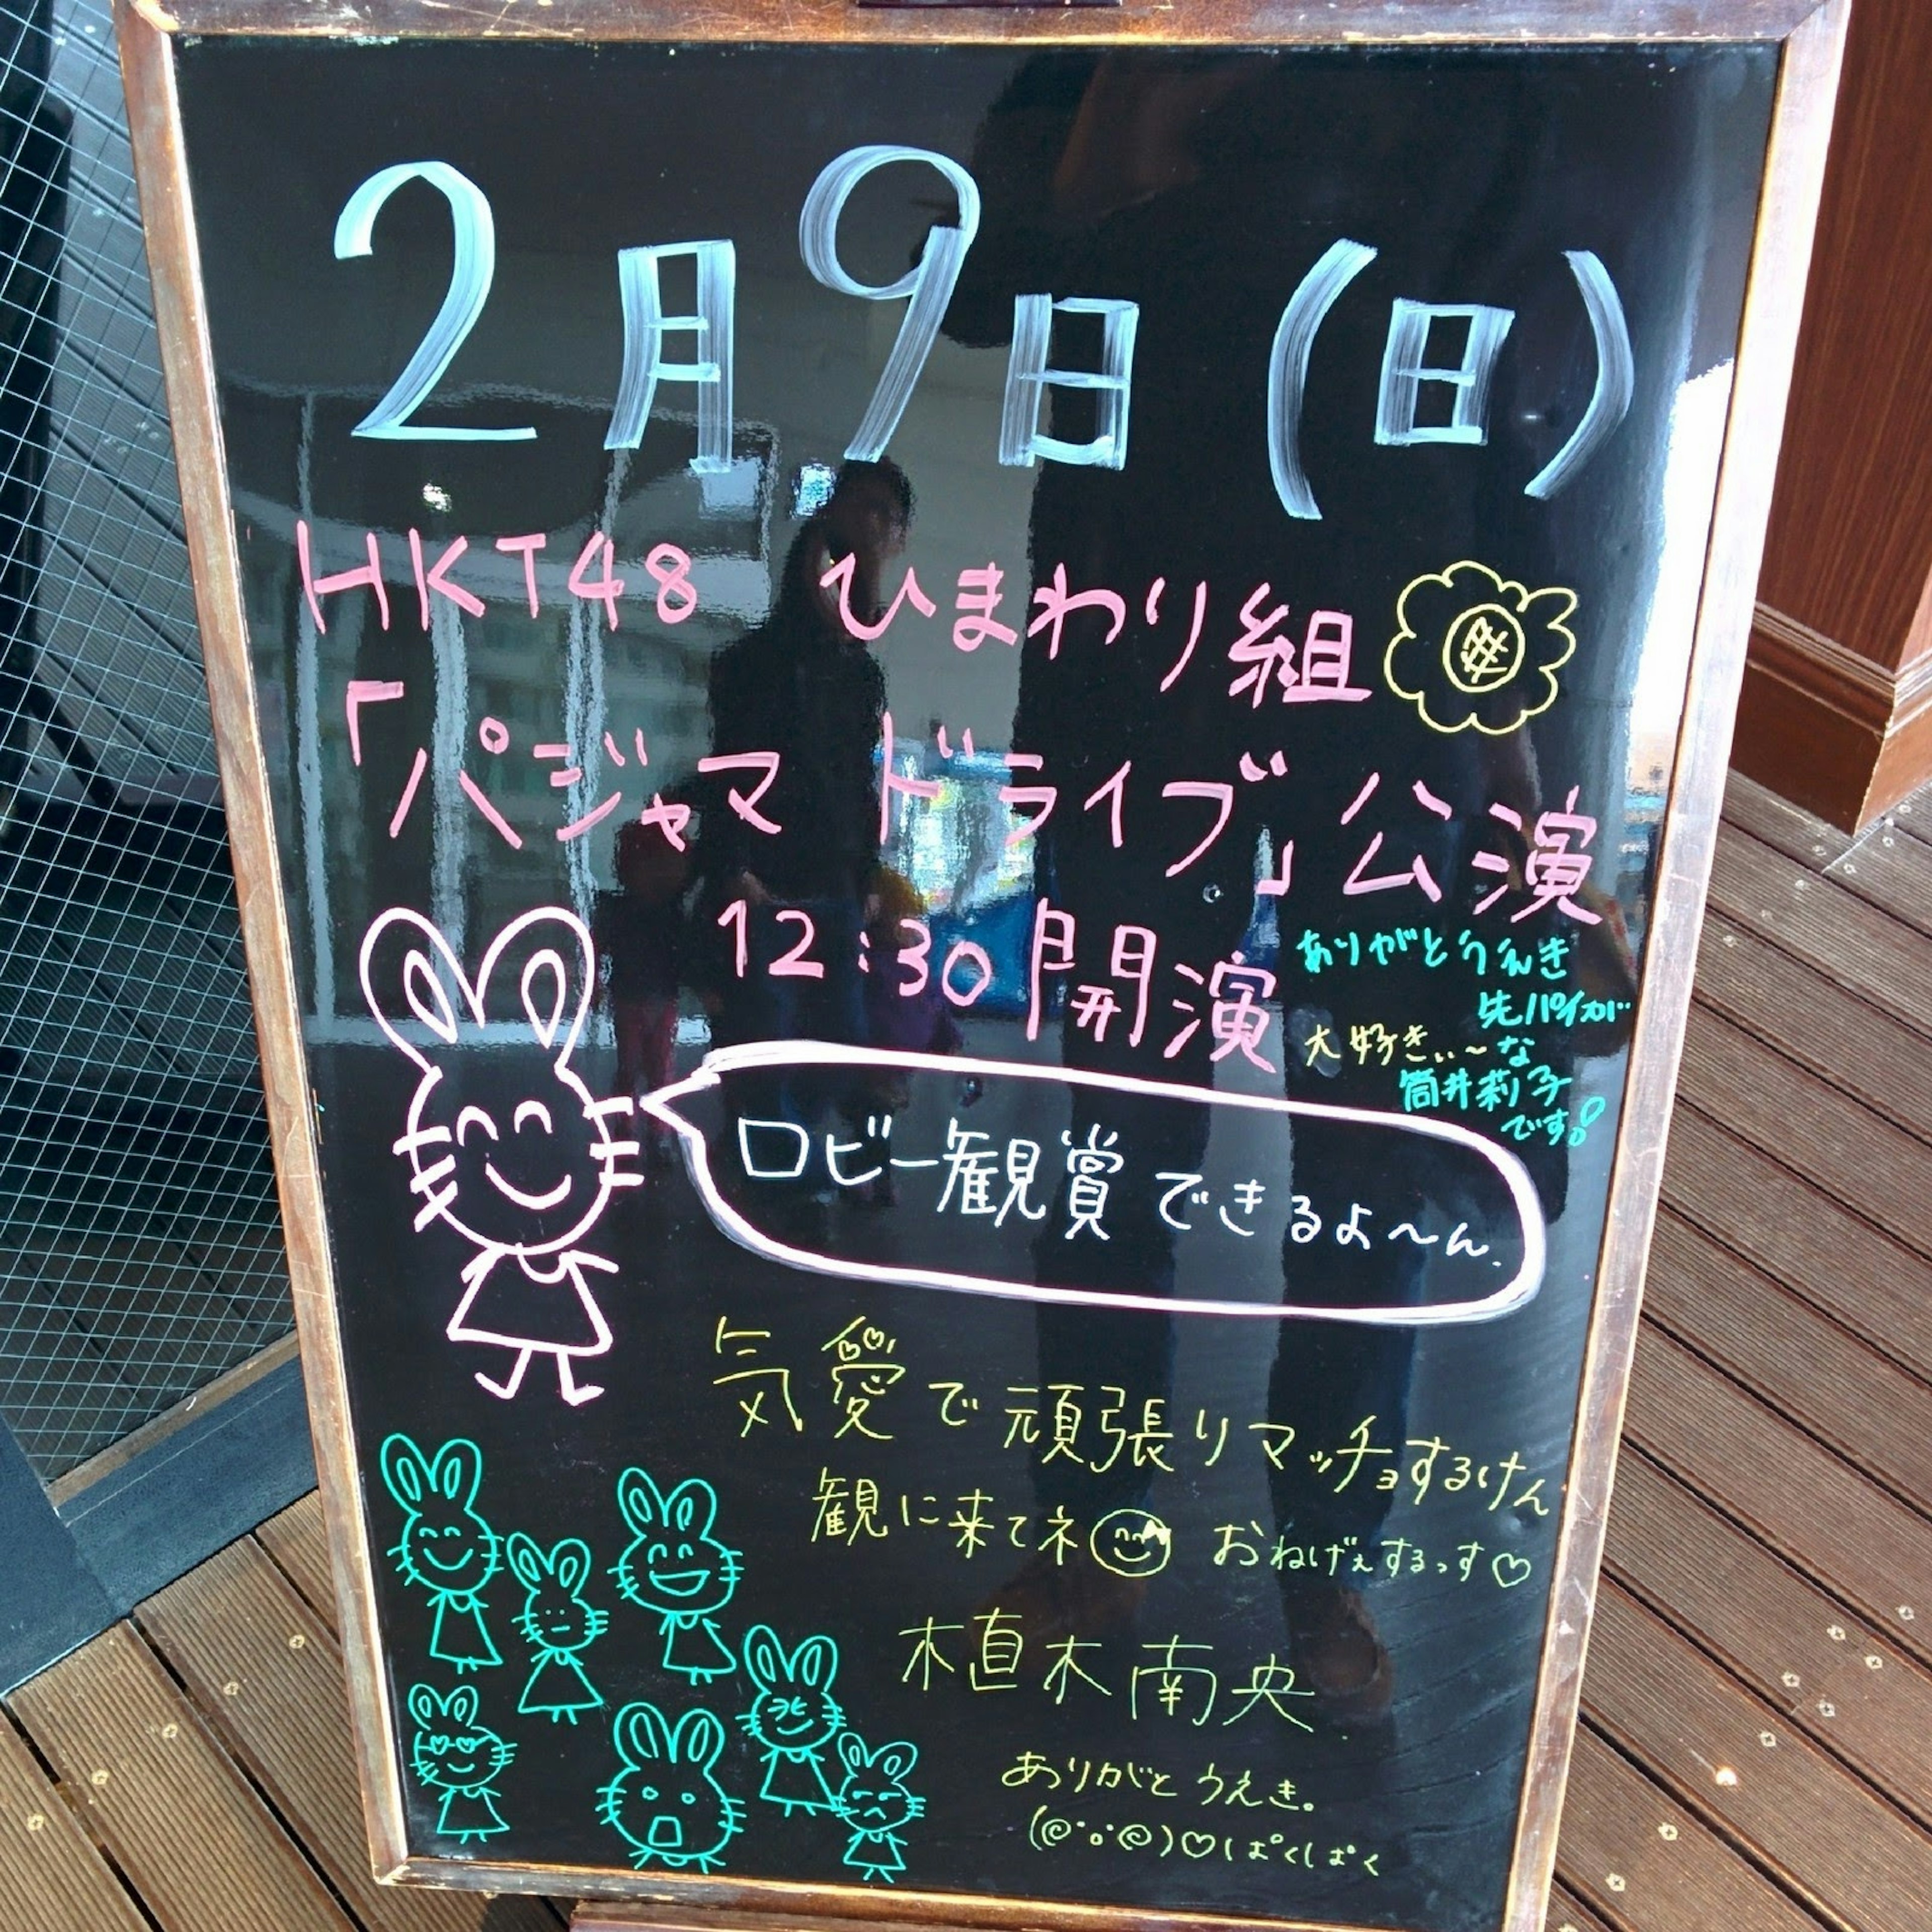 2月9日(日)
HKT48 ひまわり組
「パジャマドライブ」公演
12:30開演
ありがとううえき
先パイがが
大好きぃ〜な
筒井莉子
です!
ロビー観賞できるよ〜ん
気愛で頑張りマッチョするけん
観に来てネ おねげぇするっす♡
植木南央
ありがとうえき。
(@·o·@)♡ぱくぱく